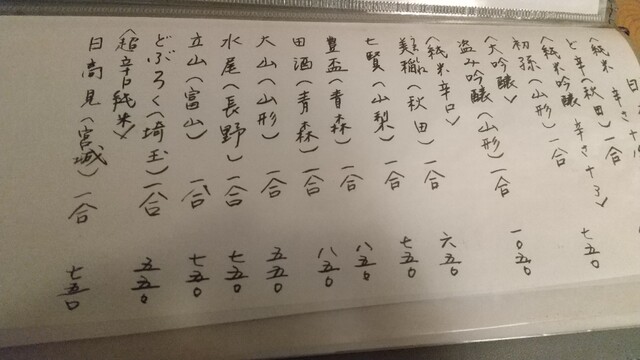 〈純米 辛さ十
と辛(秋田)一合
〈純米吟醸 辛さ十〉
初孫(山形)一合 七五〇
〈大吟醸〉
盗み吟醸(山形)一合 一〇五〇
〈純米辛口〉
美稲(秋田)一合 六五〇
七賢(山梨)一合 七五〇
豊盃(青森)一合 八五〇
田酒(青森)一合 八五〇
大山(山形)一合 五五〇
水尾(長野)一合 七五〇
立山(富山)一合 七五〇
どぶろく(埼玉)一合 五五〇
〈超辛口純米〉
日高見(宮城)一合 七五〇